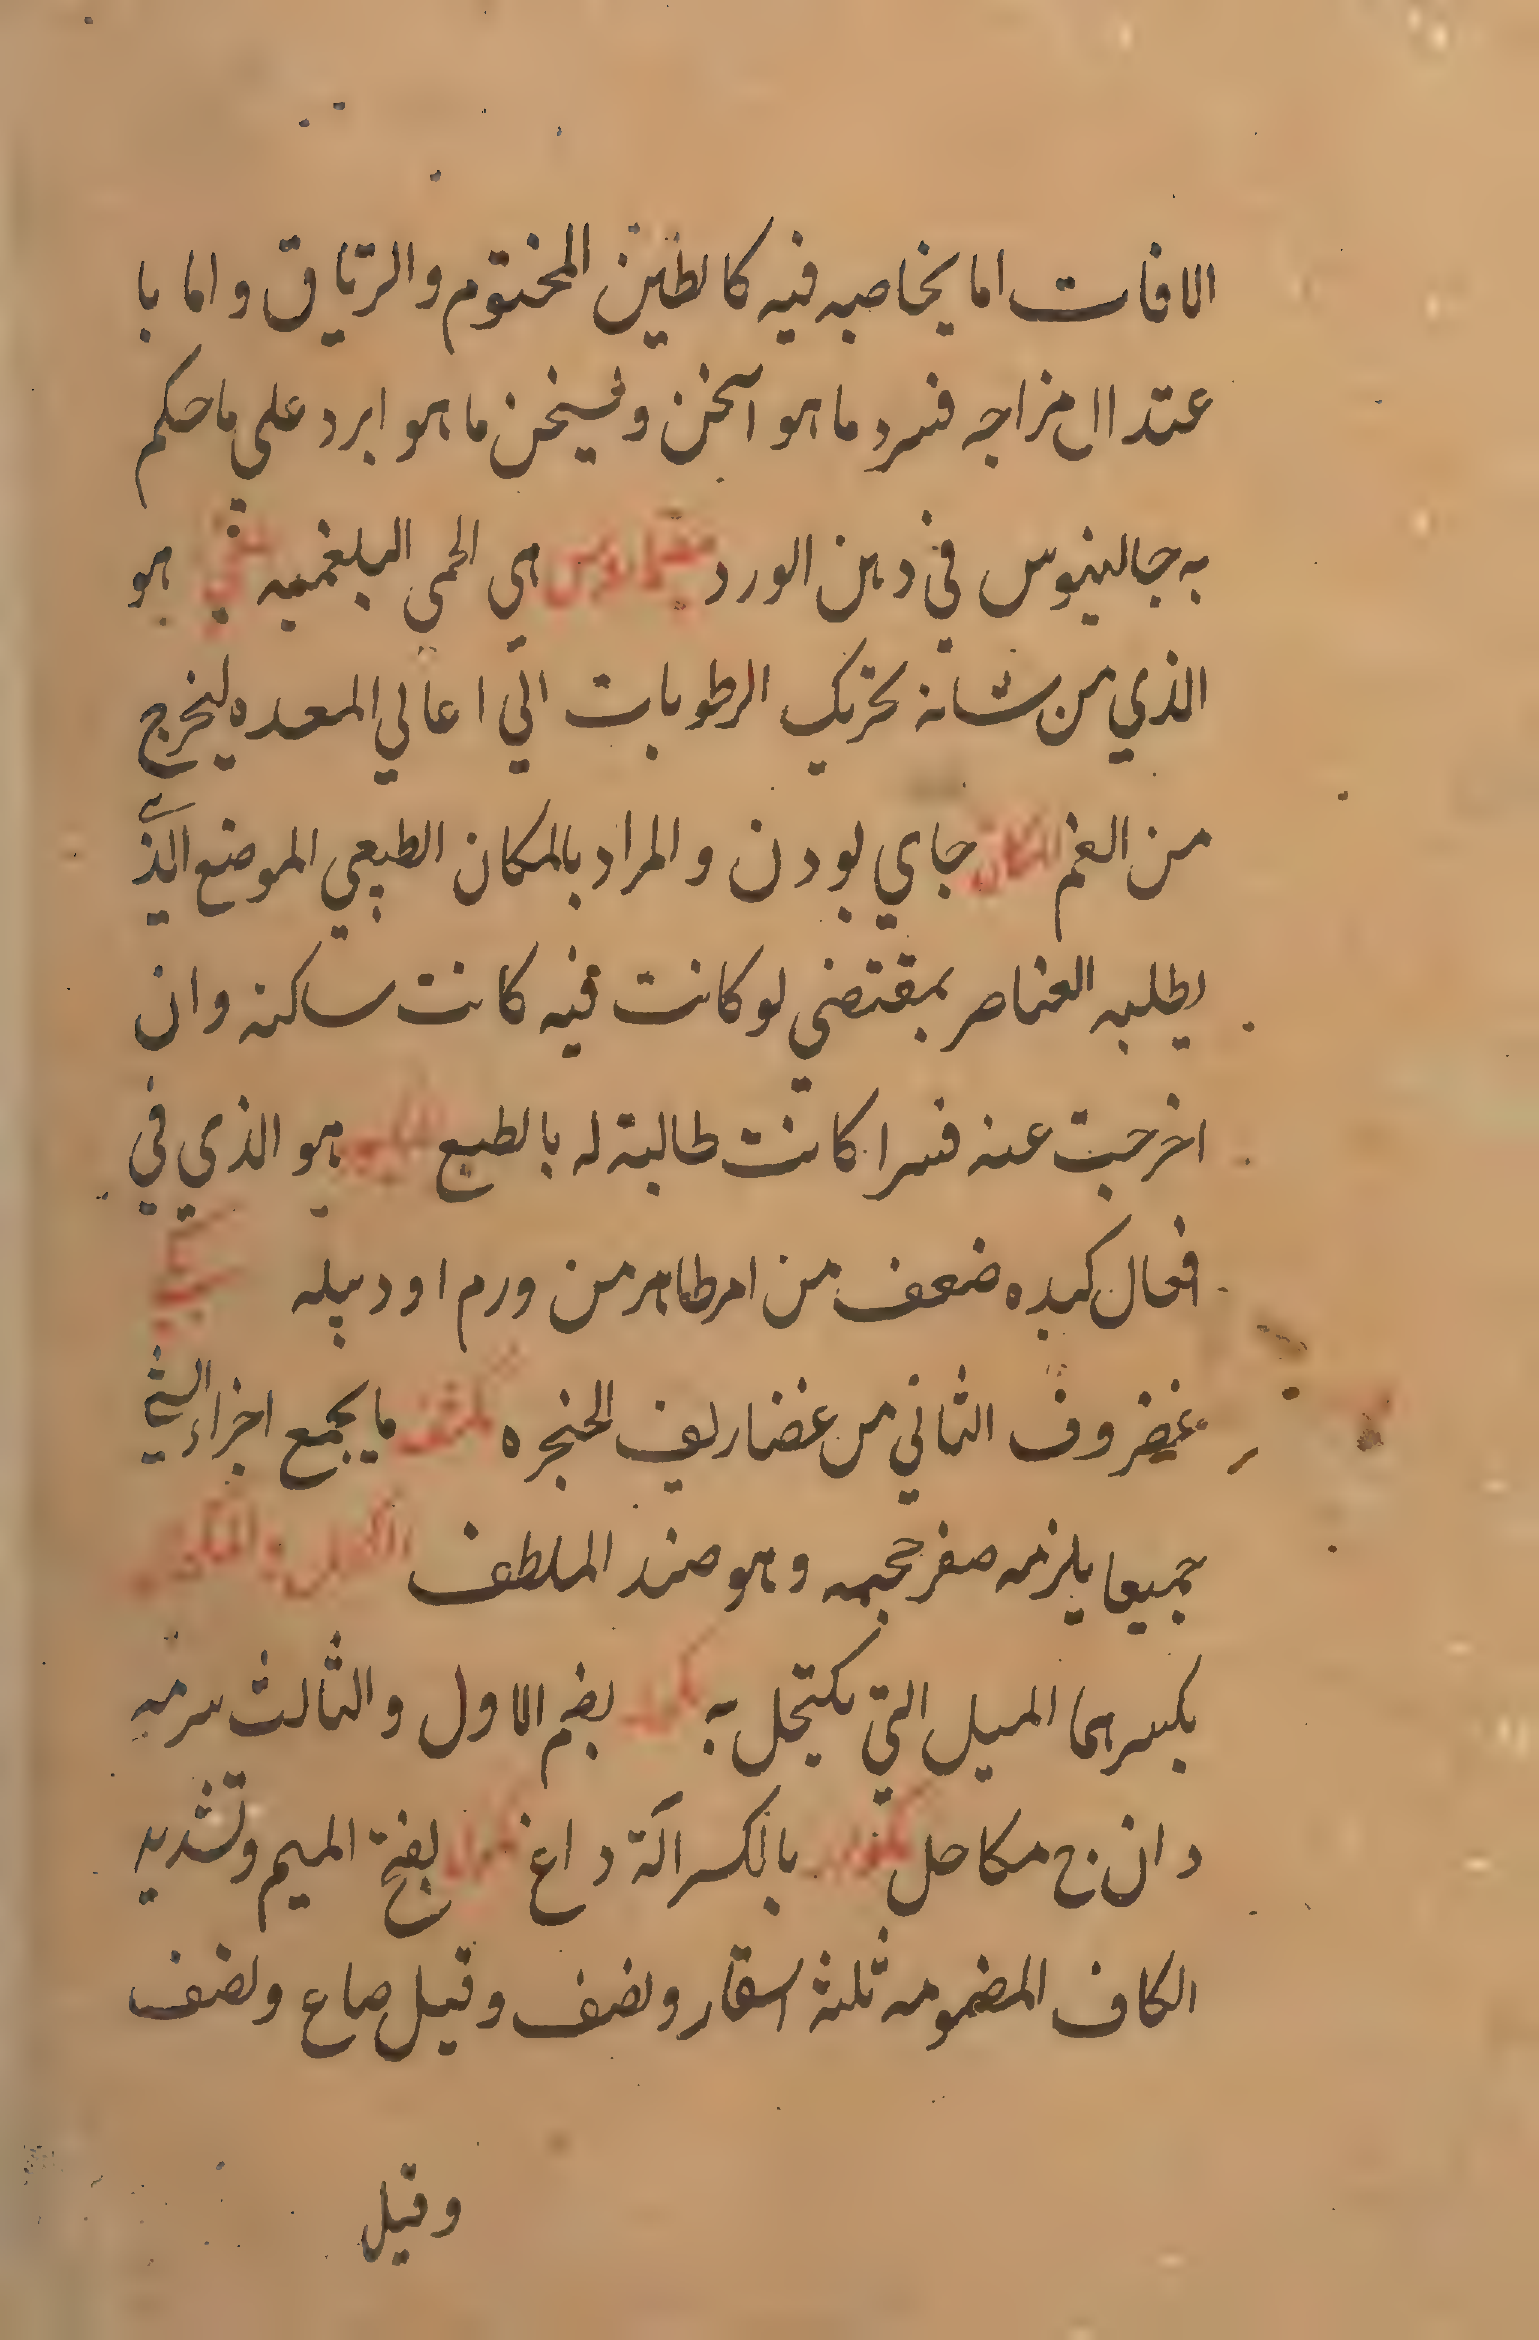 الافات اما بخاصبه فيه كالطين المختوم والترياق واما با
عتدال مزاجه فيبرد ما هو اسخن ويسخن ما هو ابرد على ما حكم
به جالينوس في دهن الورد هي الحمى البلغميه مقيئ هو
الذي من شانه تحريك الرطوبات الي اعالي المعده ليخرج
من الفم المكان جاي بودن والمراد بالمكان الطبيعي الموضع الذي
يطلبه العناصر بمقتضي لو كانت فيه كانت ساكنه وان
اخرجت عنه قسرا كانت طالبة له بالطبع هو الذي في
افعال كبده ضعف من امر ظاهر من ورم او دبيله
غضروف الثاني من غضاريف الحنجره مكثف ما يجمع اجزاء الشئ
جميعا يلزمه صغر حجمه وهو ضد الملطف
بكسرهما الميل التي يكتحل به بضم الاول والثالث سرمه
دان ج مكاحل بالكسر آلة داغ بفتح الميم وتشديد
الكاف المضمومه ثلثه اسقار ونصف وقيل صاع ونصف
وقيل